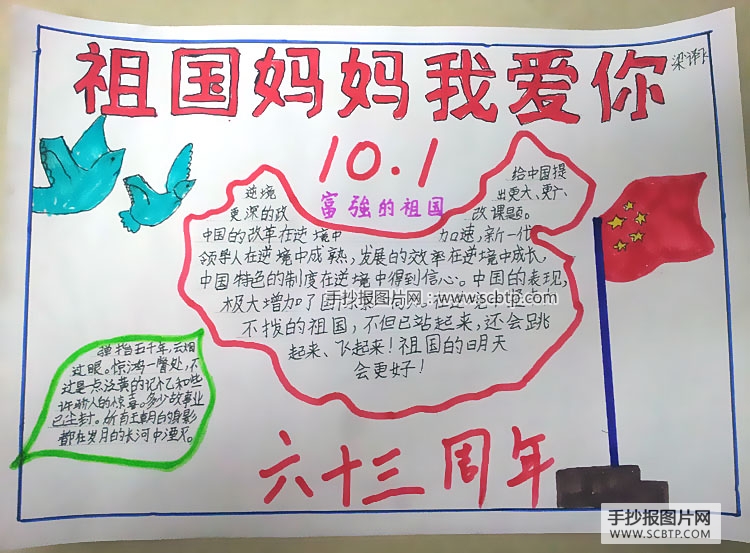 祖国妈妈我爱你
梁译
10.1
富強的祖国
逆境 给中国提
更深的改 出更大、更广、
中国的改革在逆境中 改课题。
加速,新一代
领导人在逆境中成熟,发展的效率在逆境中成长,
中国特色的制度在逆境中得到信心。中国的表现,
极大增加了国际
手抄报图片网:www.scbtp.com
不拔的祖国,不但已站起来,还会跳
起来、飞起来!祖国的明天
会更好!
弹指五千年,云烟
过眼。惊鸿一瞥处,不
过是点泛黄的记忆和些
许骄人的惊喜。多少故事业
已尘封。所有王朝的身影
都在岁月的长河中湮灭。
六十三周年
手抄报图片网
WWW.SCBTP.COM